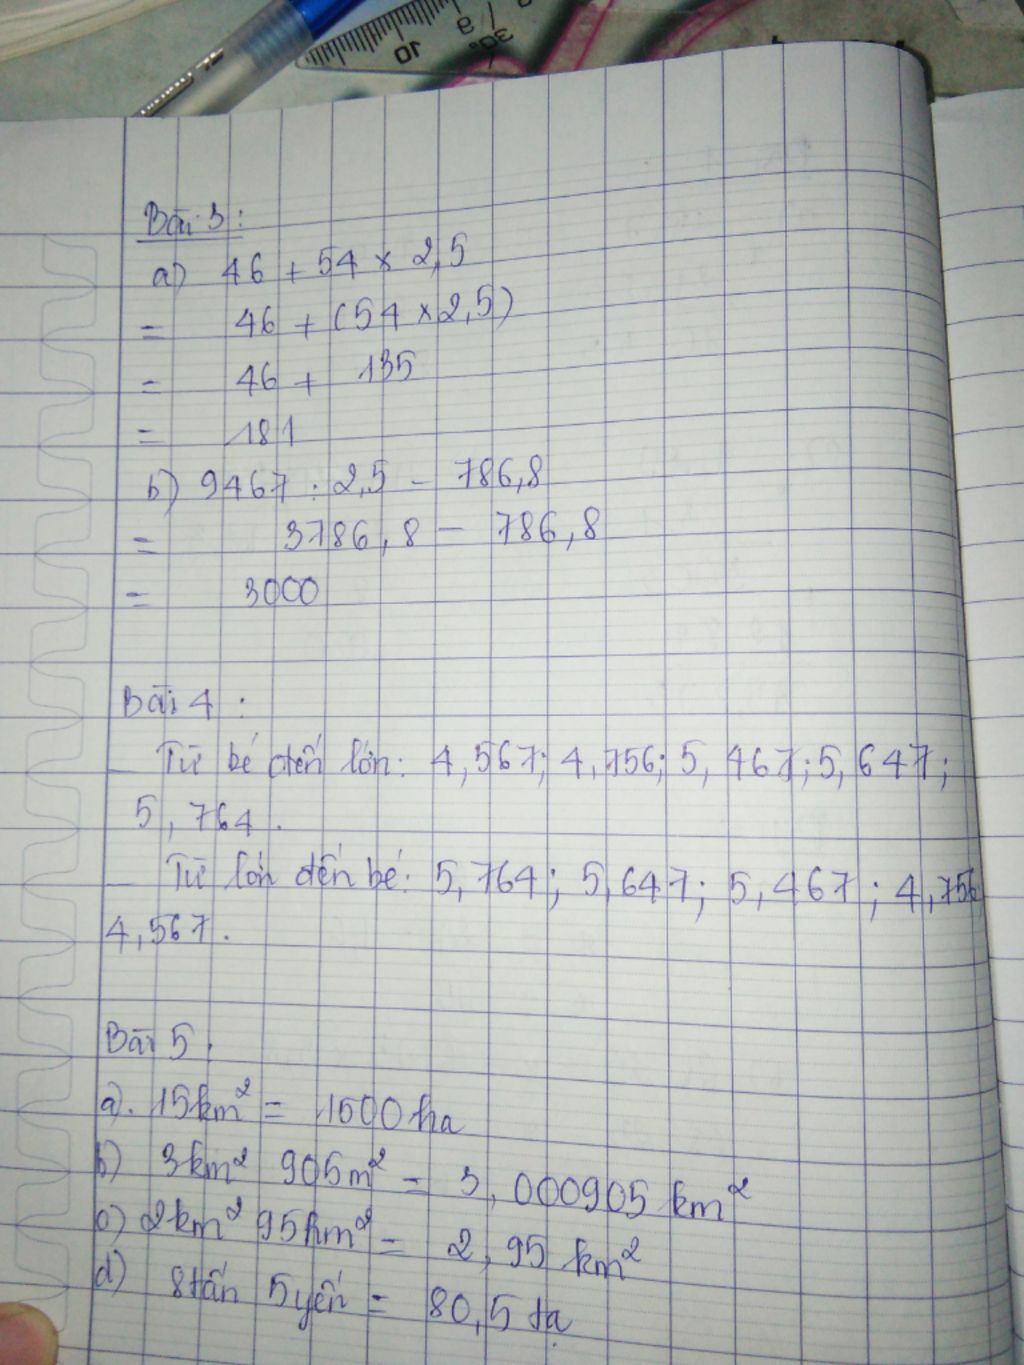 Bài 3:
a) 46 + 54 × 2,5
= 46 + (54 × 2,5)
= 46 + 135
= 181
b) 9467 : 2,5 - 786,8
= 3786,8 - 786,8
= 3000
Bài 4 :
- Từ bé đến lớn: 4,567; 4,756; 5,467; 5,647;
5,764.
- Từ lớn đến bé: 5,764; 5,647; 5,467; 4,756
4,567.
Bài 5:
a). 15km² = 1500 ha
b) 3km² 905m² = 3,000905 km²
c) 2km² 95hm² = 2,95 km²
d) 8tấn 5yến = 80,5 tạ